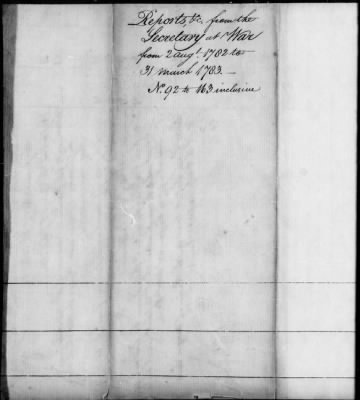 Reports, &c. from the
Secretary at War
from 2 augt. 1782 to
31 march 1783.—
No. 92 to 163 inclusive